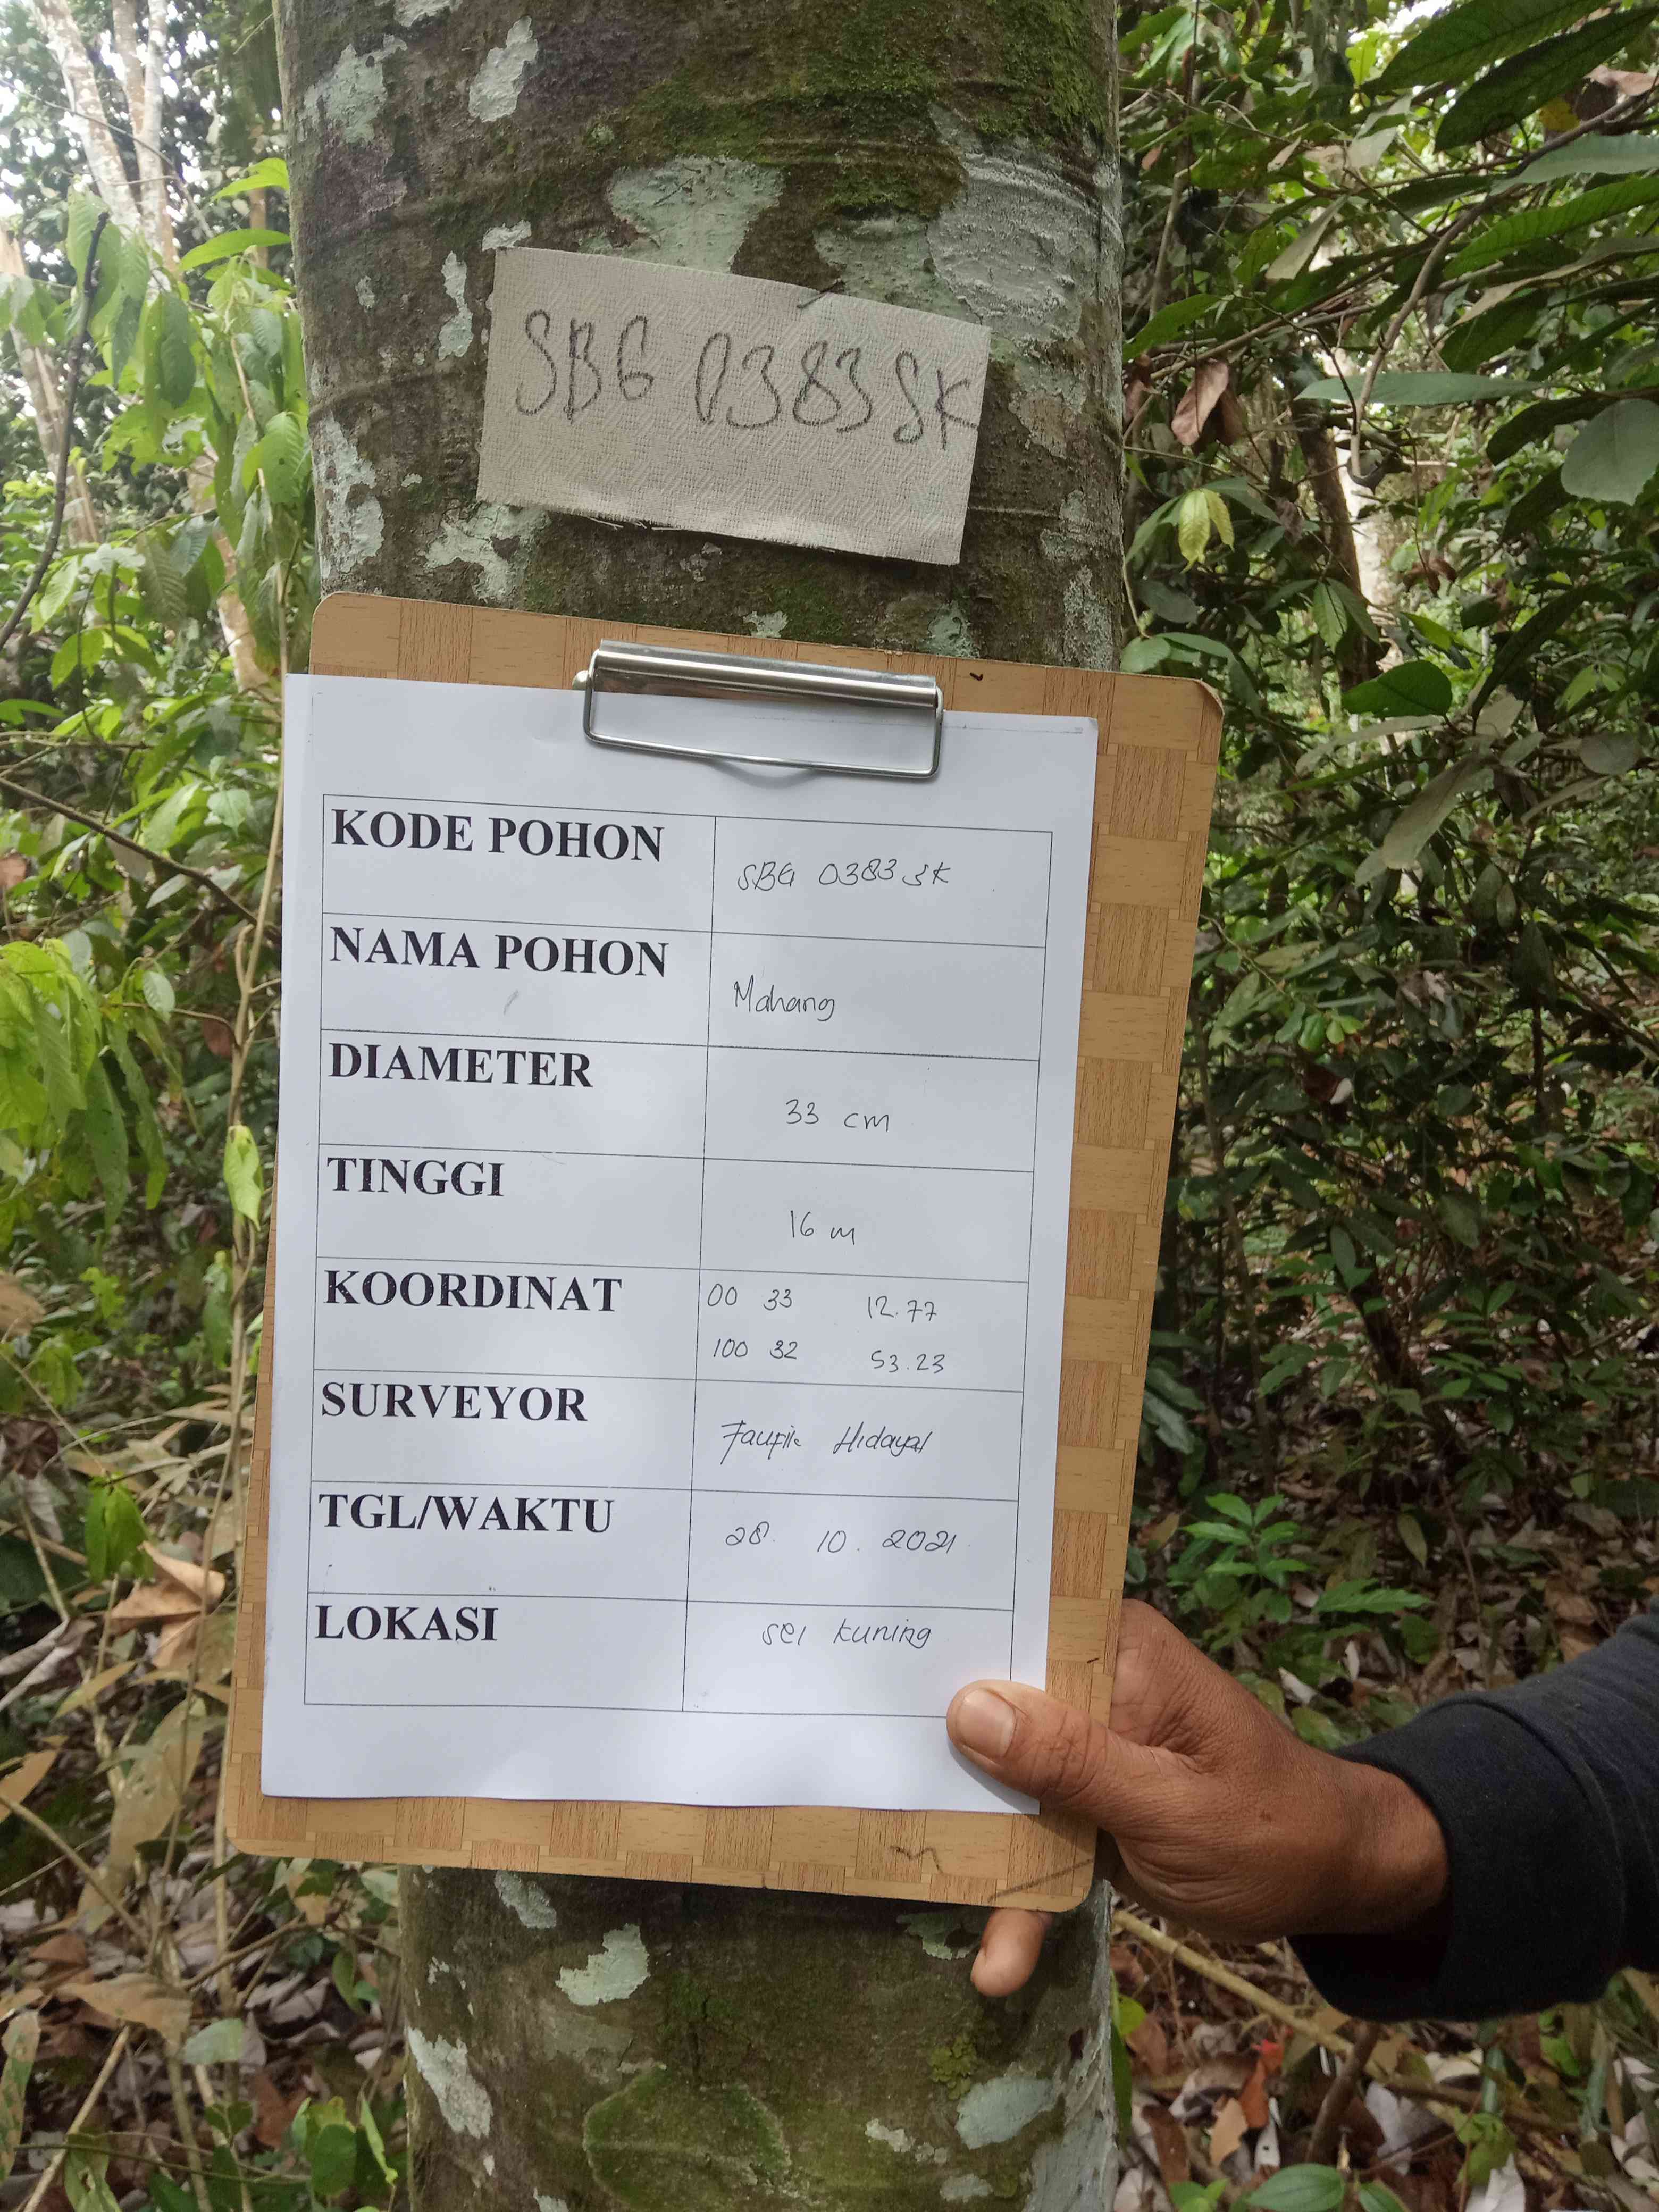 SBG 0383 SK
KODE POHON SBG 0383 SK
NAMA POHON Mahang
DIAMETER 33 cm
TINGGI 16 m
KOORDINAT 00 33 12.77
100 32 53.23
SURVEYOR Taufik Hidayat
TGL/WAKTU 28. 10. 2021
LOKASI sei kuning